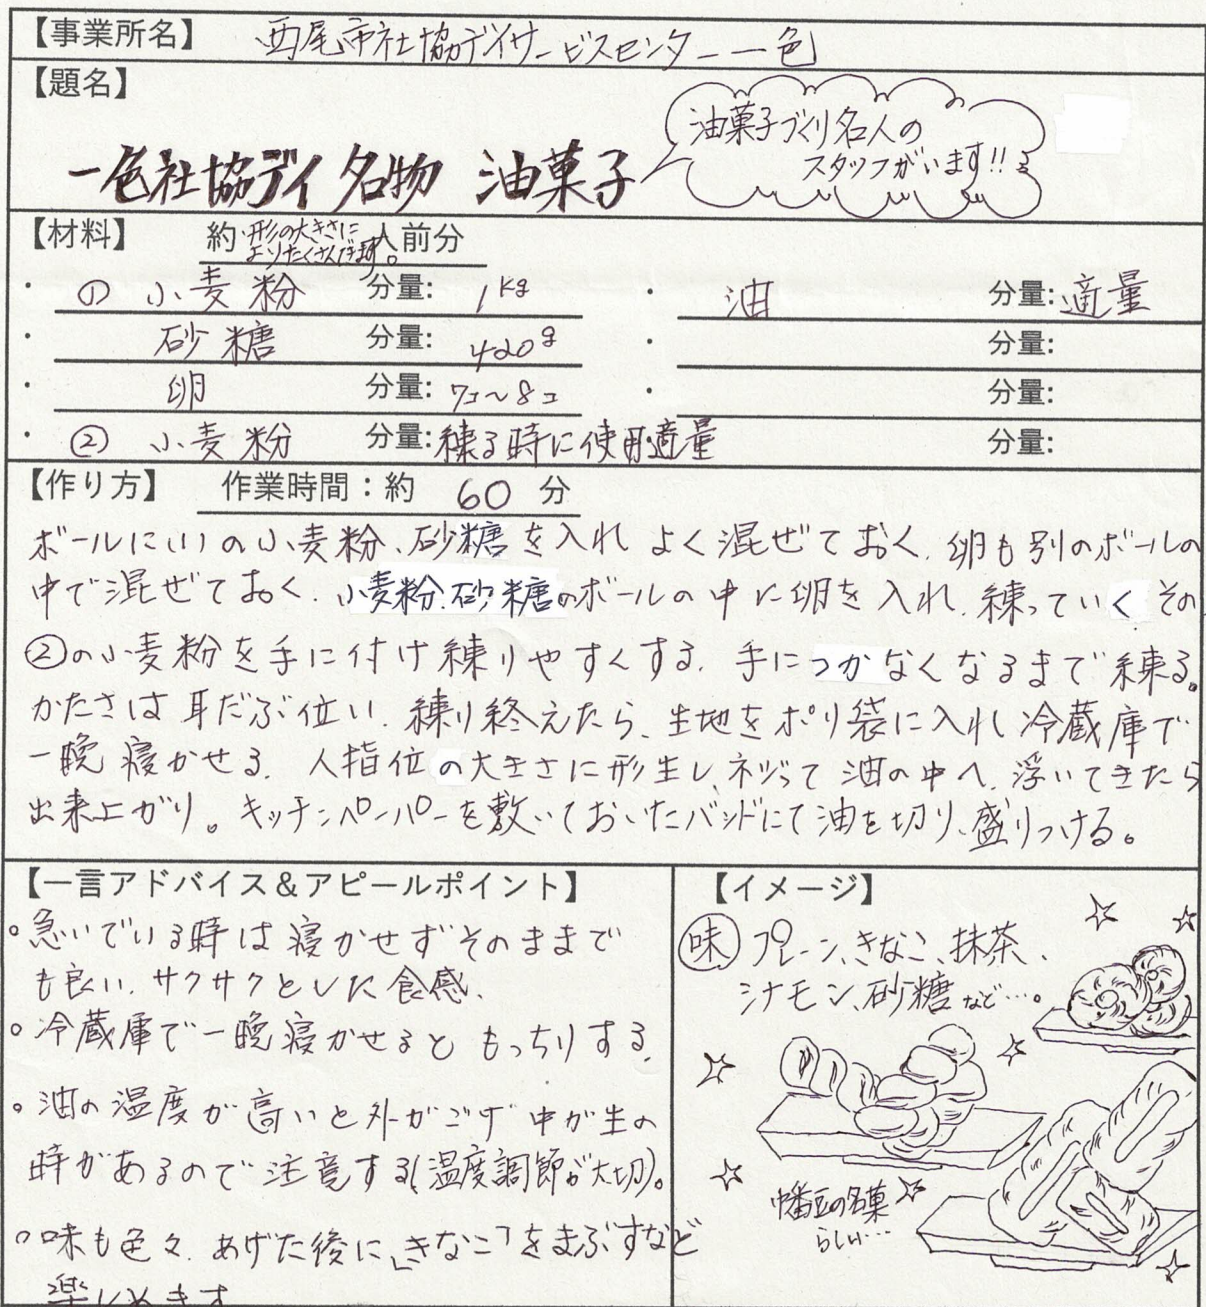 【事業所名】 西尾市社協デイサービスセンター一色
【題名】
油菓子づくり名人の
スタッフがいます!!
一色社協デイ名物 油菓子
【材料】 約 形の大きさに よりたくさんできます。 人前分
・ (1) 小麦粉 分量: 1kg ・ 油 分量: 適量
・ 砂糖 分量: 420g ・ 分量:
・ 卵 分量: 7コ~8コ ・ 分量:
・ ② 小麦粉 分量: 練る時に使用適量 分量:
【作り方】 作業時間:約 60 分
ボールに(1)の小麦粉、砂糖を入れ よく混ぜておく、卵も別のボールの
中で混ぜておく、小麦粉、砂糖のボールの中に卵を入れ、練っていく その
②の小麦粉を手に付け練りやすくする、手につかなくなるまで練る。
かたさは耳だぶ位い、練り終えたら、生地をポリ袋に入れ冷蔵庫で
一晩寝かせる、人指位の大きさに形生し、ネジって油の中へ、浮いてきたら
出来上がり。キッチンペーパーを敷いておいたバッドにて油を切り、盛りつける。
【一言アドバイス&アピールポイント】
○急いでいる時は寝かせずそのままで
も良い、サクサクとした食感、
○冷蔵庫で一晩寝かせると もっちりする、
○油の温度が高いと外がこげ 中が生の
時があるので注意する(温度調節が大切)。
○味も色々、あげた後に「きなこ」をまぶすなど
楽しめます
【イメージ】
味 プレーン、きなこ、抹茶、
シナモン、砂糖など…。
幡豆の名菓
らしい…